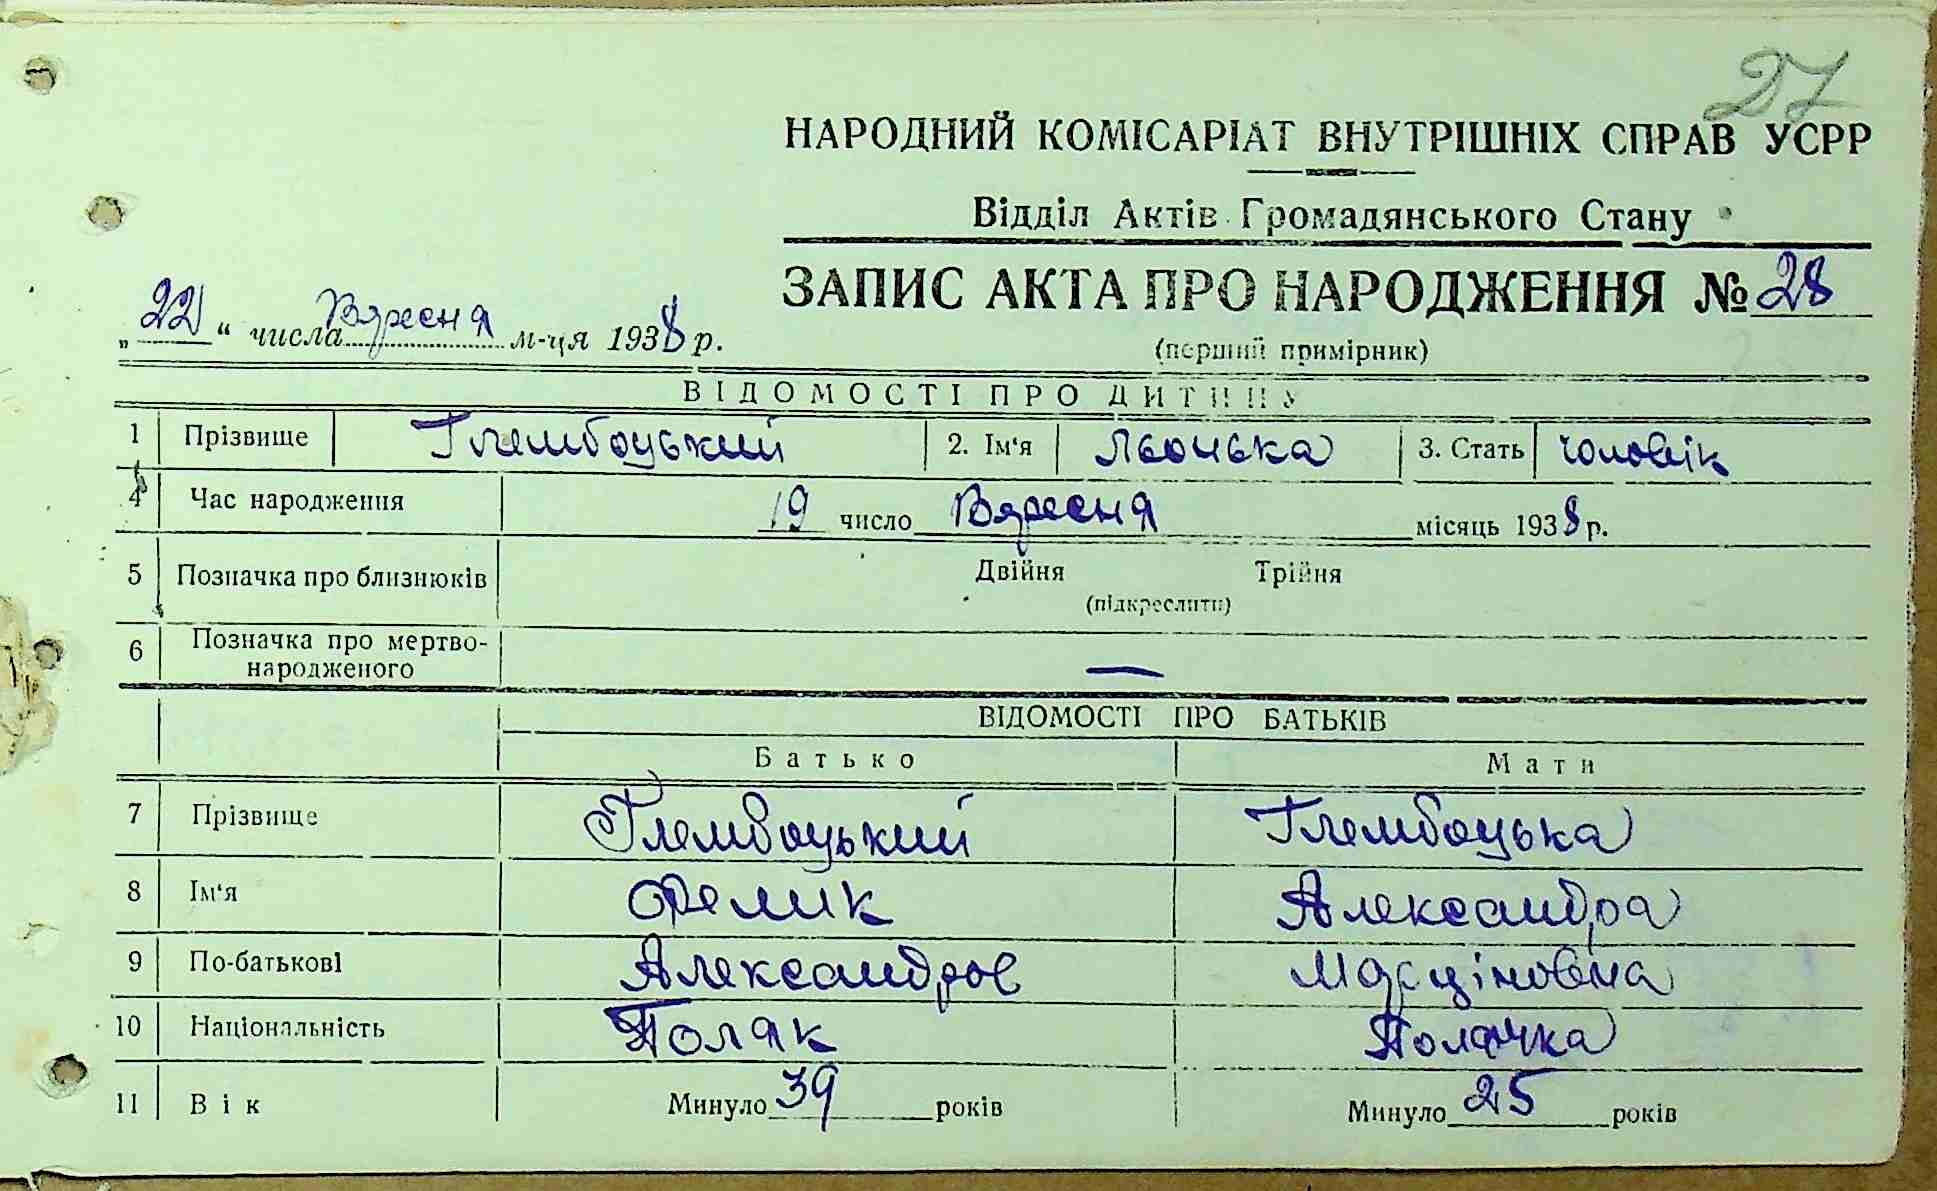 27
НАРОДНИЙ КОМІСАРІАТ ВНУТРІШНІХ СПРАВ УСРР
Відділ Актів Громадянського Стану
ЗАПИС АКТА ПРО НАРОДЖЕННЯ № 28
„22“ числа Вяресня м-ця 1938 р.
(перший примірник)
ВІДОМОСТІ ПРО ДИТИНУ
1 Прізвище Глембоцький 2. Ім‘я Льонька 3. Стать чоловік
4 Час народження 19 число Вяресня місяць 1938 р.
5 Позначка про близнюків Двійня Трійня
(підкреслити)
6 Позначка про мертво-
народженого —
ВІДОМОСТІ ПРО БАТЬКІВ
Батько Мати
7 Прізвище Глембоцький Глембоцька
8 Ім‘я Фелик Александра
9 По-батькові Александров Марціновна
10 Національність Поляк Полячка
11 Вік Минуло 39 років Минуло 25 років